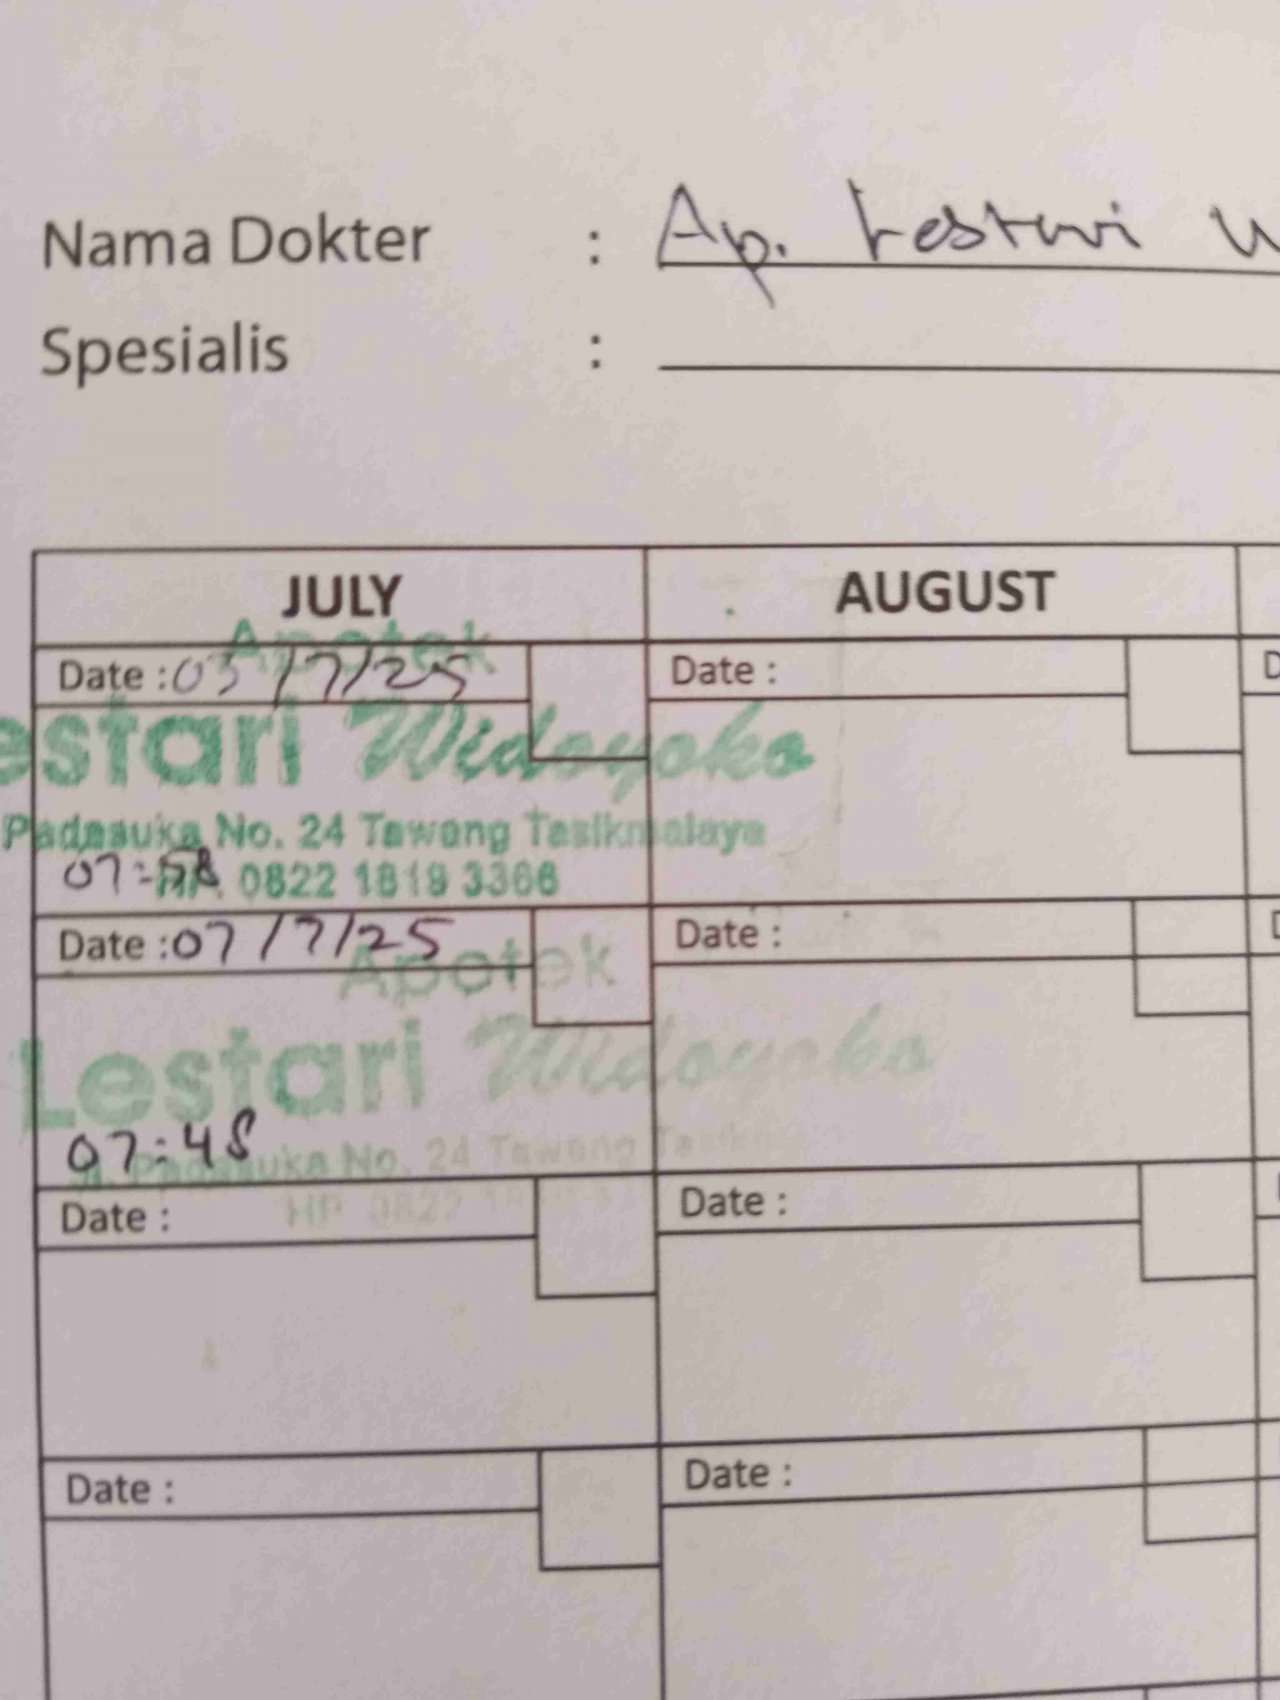 Nama Dokter : Ap. Lestari W
Spesialis :
JULY AUGUST
Apotek
Date : 03/7/25 Date :
estari Widoyoko
Padasuka No. 24 Tawang Tasikmalaya
07:58 HP. 0822 1819 3366
Date : 07/7/25 Date :
Apotek
Lestari Widoyoko
07:48
Jl. Padasuka No. 24 Tawang
Date : HP 0822 Date :
Date : Date :